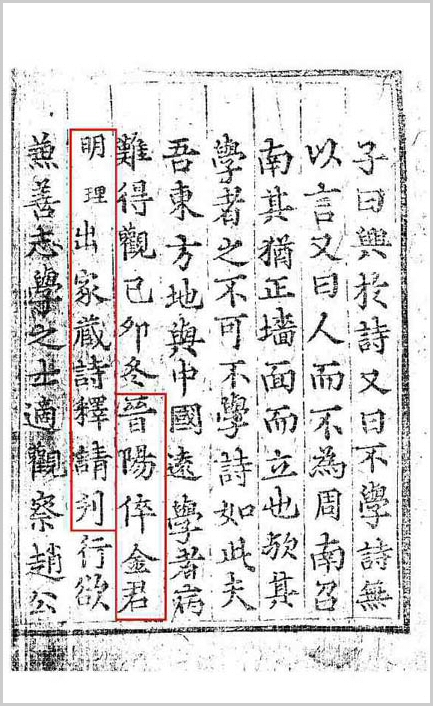 子曰興於詩又曰不學詩無
以言又曰人而不為周南召
南其猶正墻面而立也欤其
學者之不可不學詩如此夫
吾東方地與中國遠學者病
難得觀已卯冬晉陽倅金君
明理出家藏詩釋請刋行欲
兼善志學之士適觀察趙公